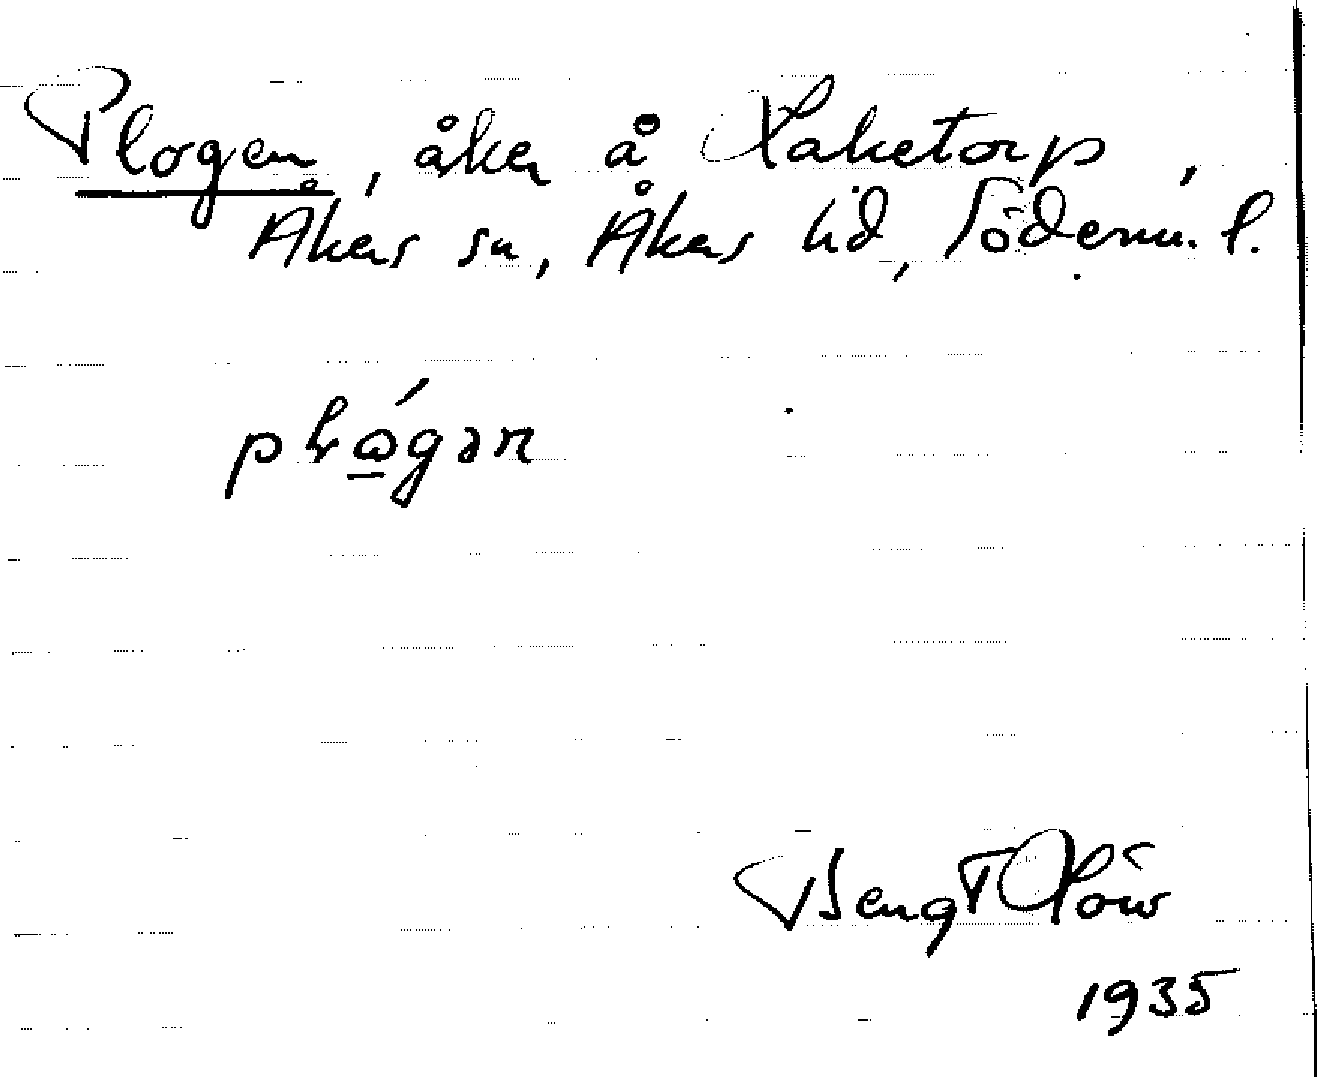 Plogen, åker å Laketorp,
Åkers sn, Åkers hd, Söderm. l.
pló̲gən
Bengt Löw
1935